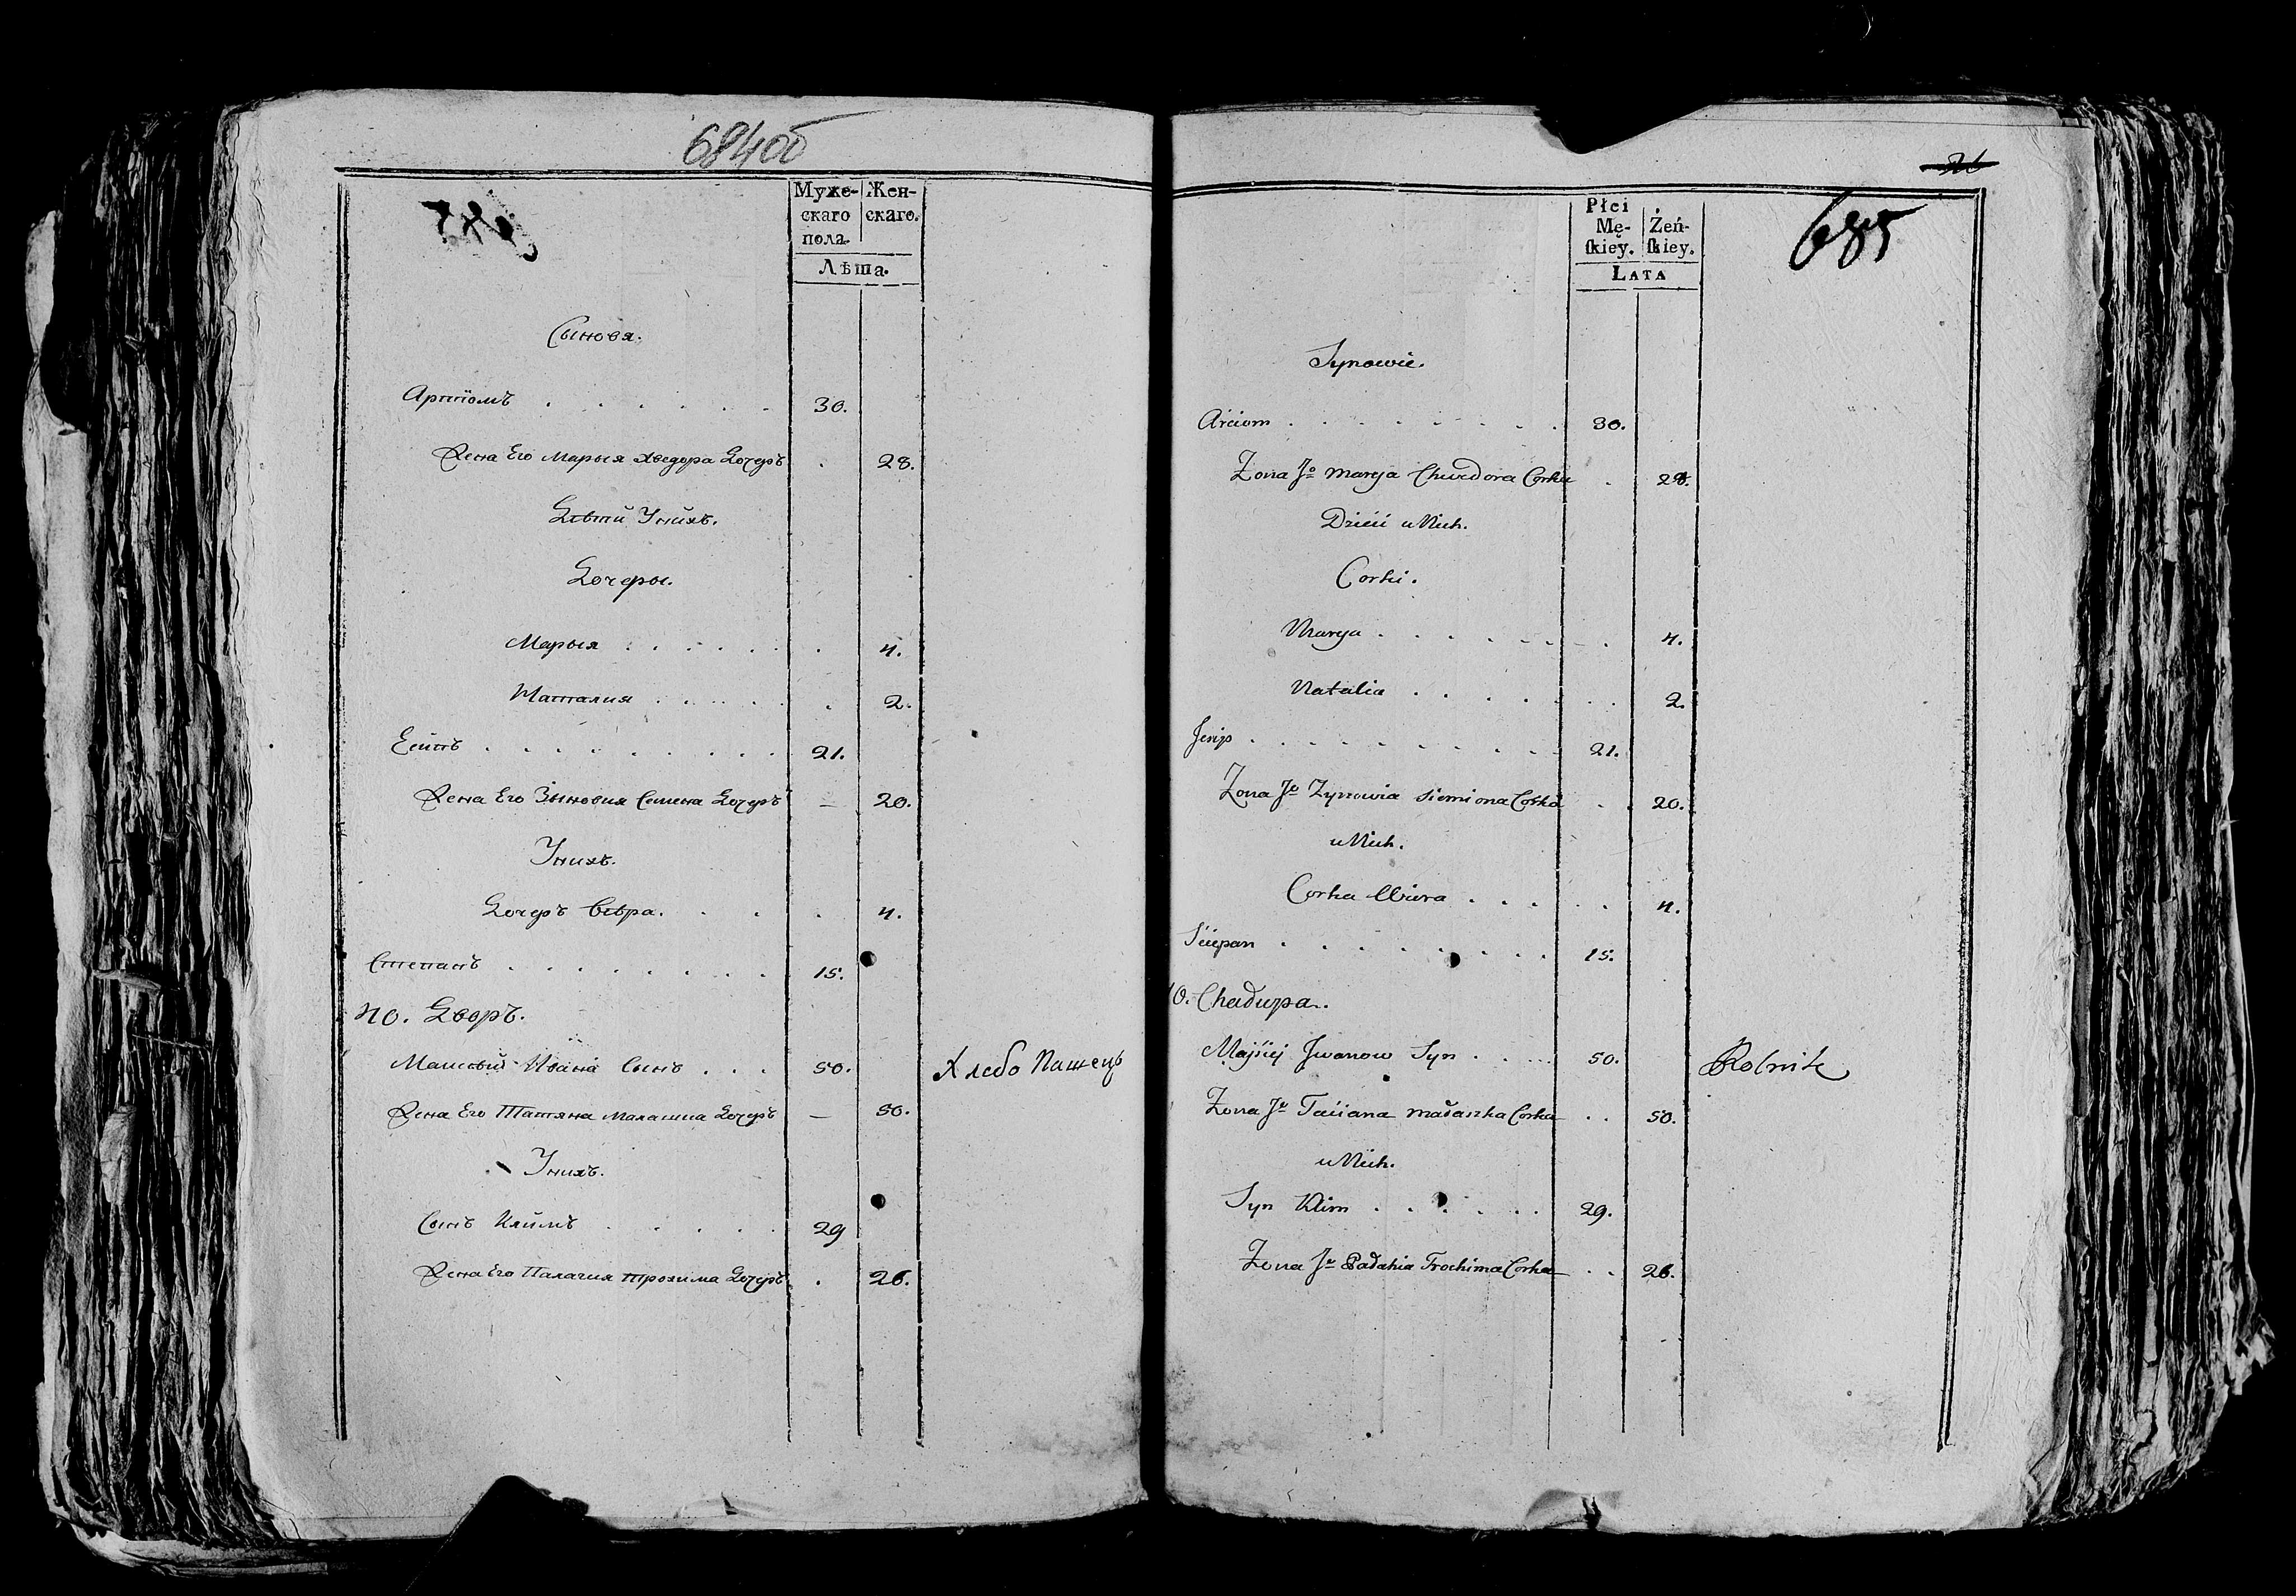 684об
Муже- Жен-
скаго скаго.
пола.
Лѣта.
Сыновя.
Артіомъ . . . . . . 30.
Жена Его Марыя Хведора Дочеръ . 28.
Дѣти Унихъ.
Дочеры.
Марыя . . . . . . 4.
Наталия . . . . . . 2.
Есипъ . . . . . . . . . 21.
Жена Его Зыновия Семена Дочеръ — 20.
Унихъ.
Дочеръ Вѣра. . . . . 4.
Степанъ . . . . . . . . 15.
10. Дворъ.
Матвѣй Ивана Сынъ . . . 50. Хлебо Пашецъ
Жена Его Татяна Малашка Дочеръ — 50.
Унихъ.
Сынъ Климъ . . . . . 29
Жена Его Палагия Трохима Дочеръ . 26.
685
Płci
Mę- Żeń-
ſkiey. ſkiey.
LATA
Synowie.
Arciom . . . . . . . . 30.
Żona Jo Marya Chwedora Corka . 28.
Dzieci u Nich.
Corki.
Marya . . . . . . . 4.
Natalia . . . . . . 2.
Jesip . . . . . . . . . 21.
Żona Jo Zynowia Siemiona Corka . . 20.
u Nich.
Corka Wiera . . . . . 4.
Sciepan . . . . . . . . 15.
10. Chałupa.
Majsiej Jwanow Syn . . . 50. Rolnik
Żona Jo Taciana Małaszka Corka . . 50.
u Nich.
Syn Klim . . . . . . 29.
Żona Jo Pałahia Trochima Corka . . 26.